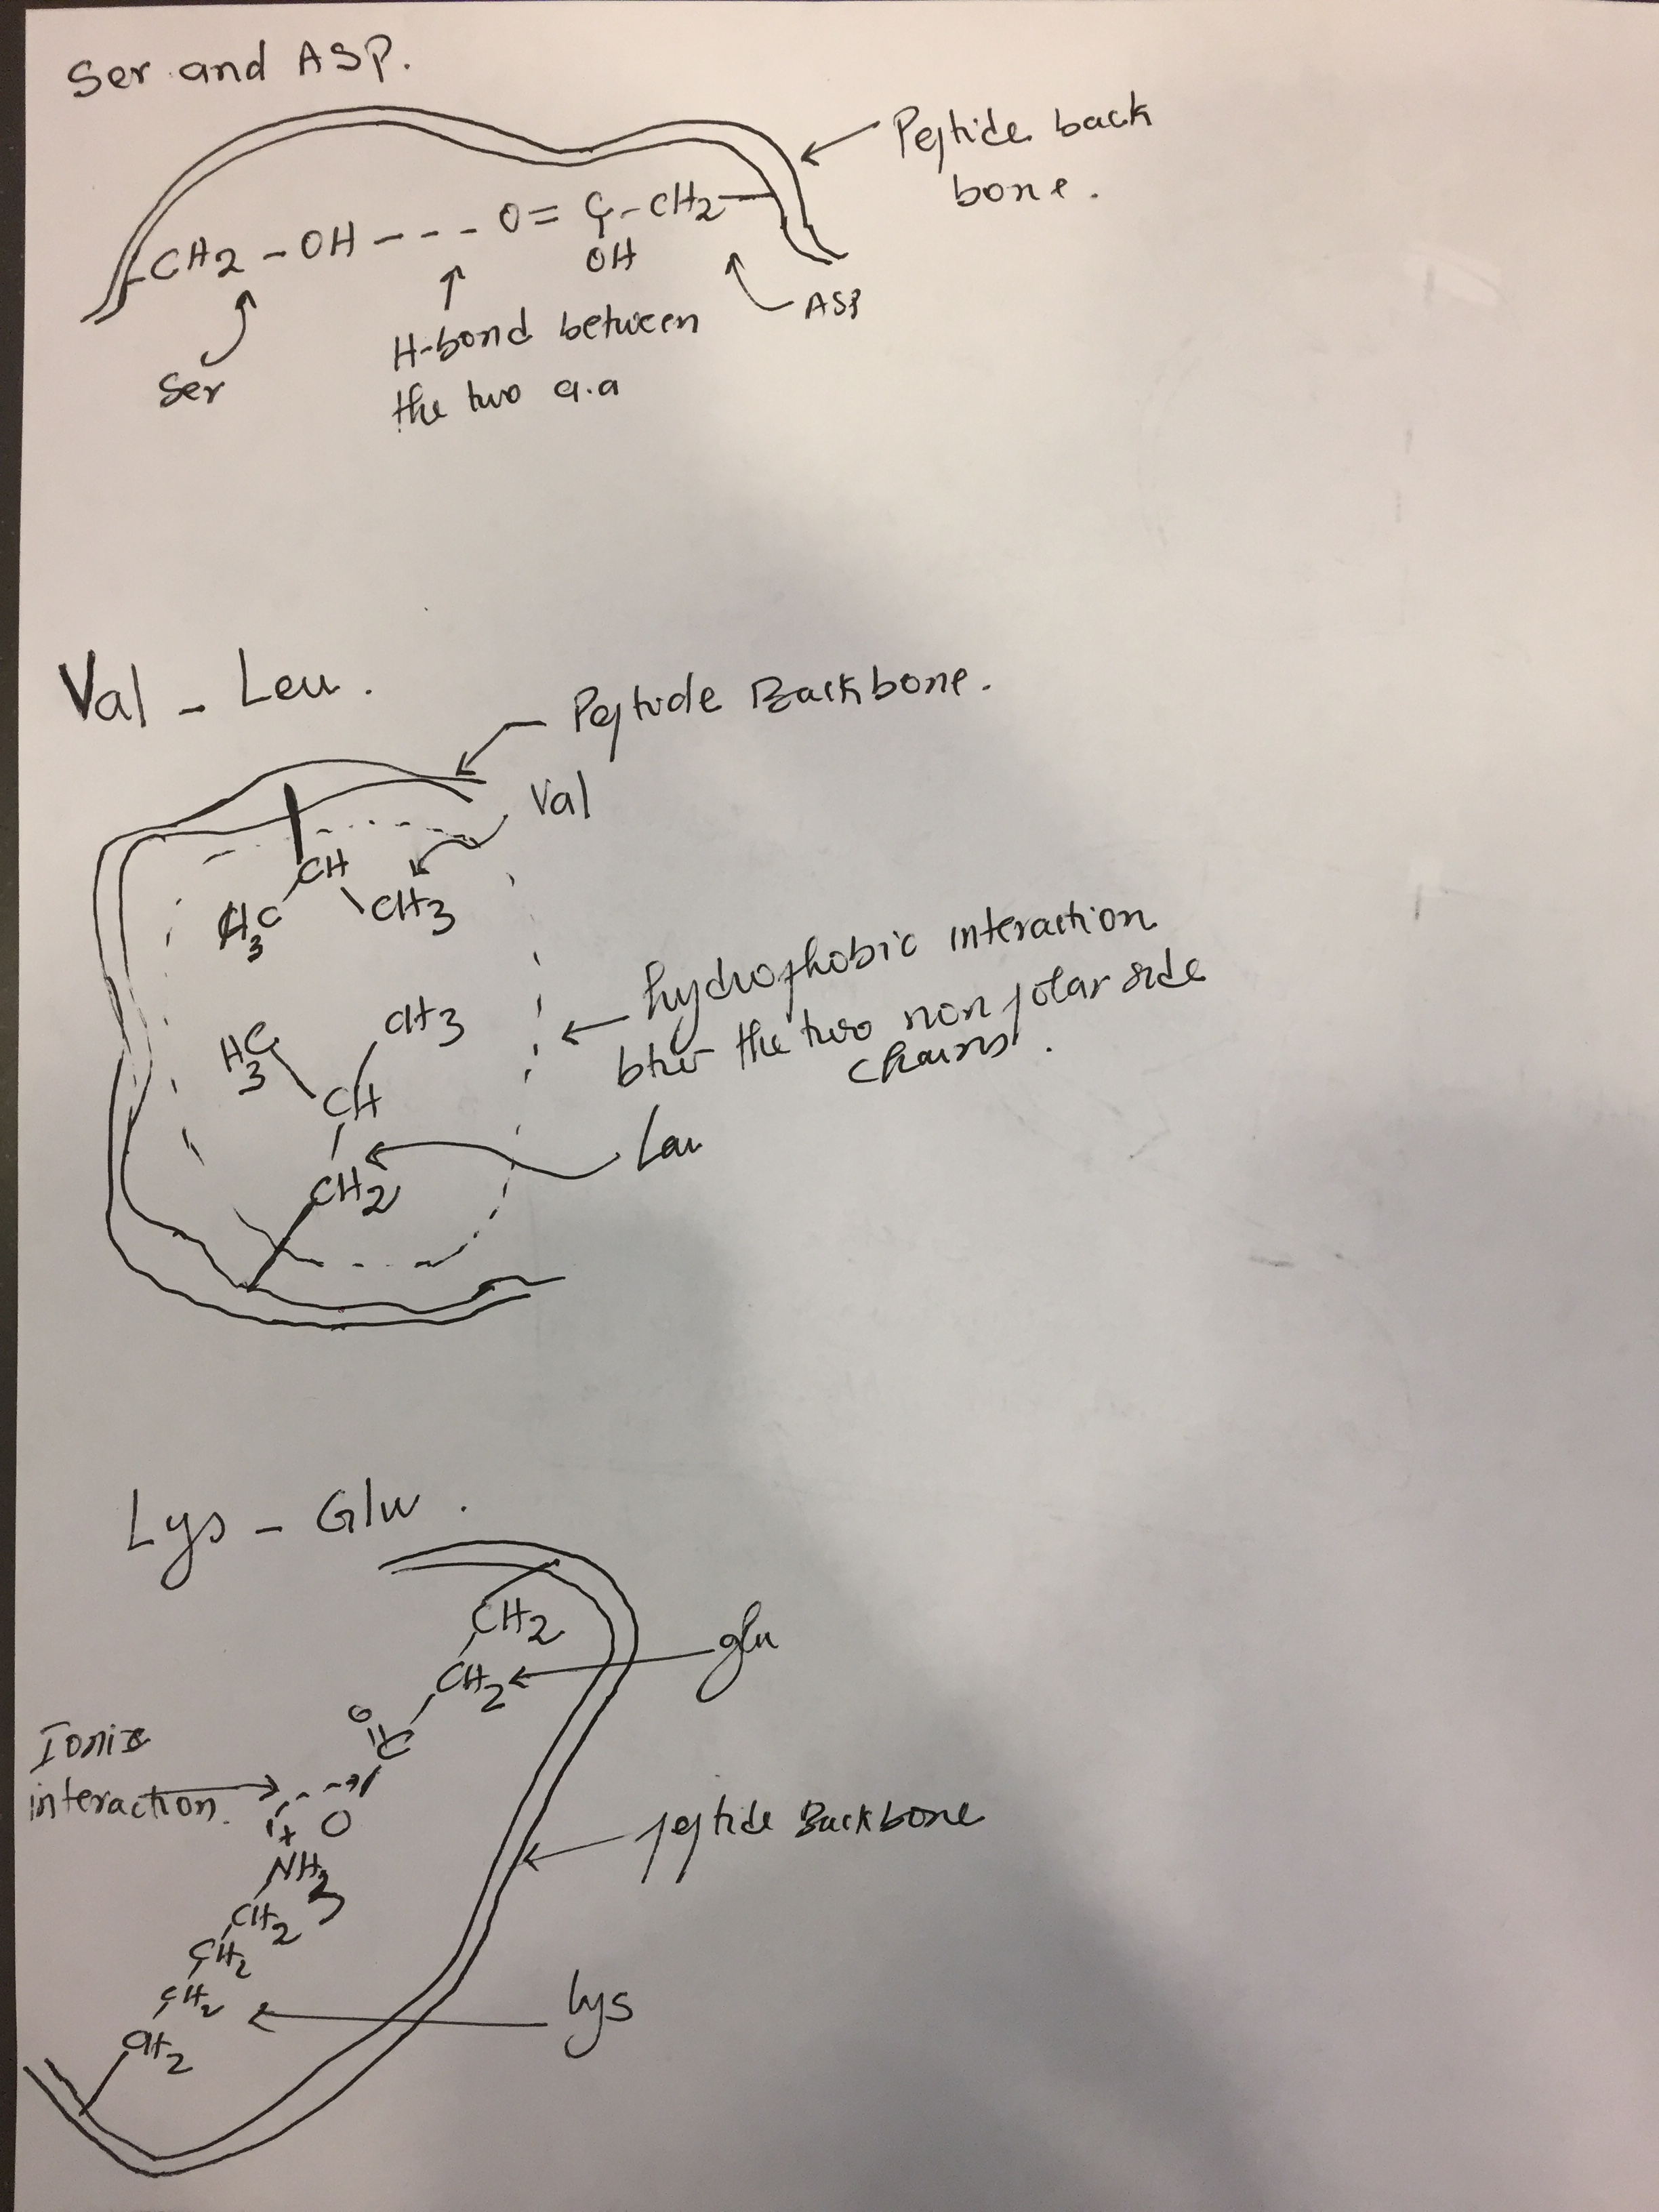 Ser and ASP.
Peptide back
bone.
CH2 - OH - - - - O = C - CH2
OH
ASP
Ser
H-bond between
the two a.a
Val - Leu.
Peptide Backbone.
Val
CH
H3C CH3
hydrophobic interaction
btw the two non polar side
chains.
H3C CH3
CH
Leu
CH2
Lys - Glu.
CH2
glu
CH2
O
C
Ionic
interaction.
O
+
NH3
peptide Backbone
CH2
CH2
CH2
lys
CH2